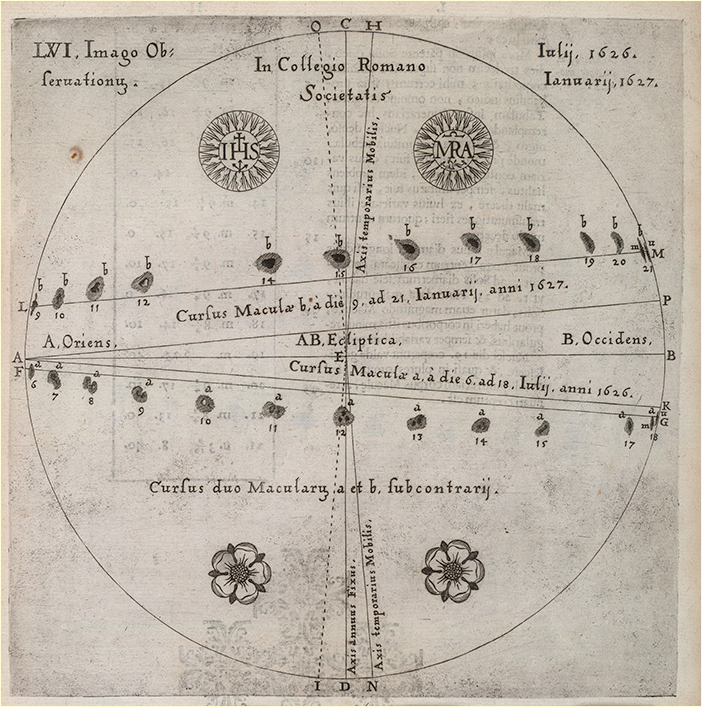 O C H
LVI. Imago Ob=
seruationũ.
In Collegio Romano
Societatis
Iulij, 1626.
Ianuarij, 1627.
IHS
MRA
Axis temporarius Mobilis,
b b b b b b b b b b b b
9 10 11 12 14 15 16 17 18 19 20 21
m u
L
M
Cursus Maculæ b, a die 9, ad 21, Ianuarij, anni 1627.
P
A, Oriens,
AB, Ecliptica,
B, Occidens,
A
E
B
F
Cursus Maculæ a, a die 6, ad 18, Iulij, anni 1626.
K
G
a a a a a a a a a a a a
6 7 8 9 10 11 12 13 14 15 17 18
m u
Cursus duo Macularũ a et b, subcontrarij.
Axis annuus Fixus,
Axis temporarius Mobilis,
I D N